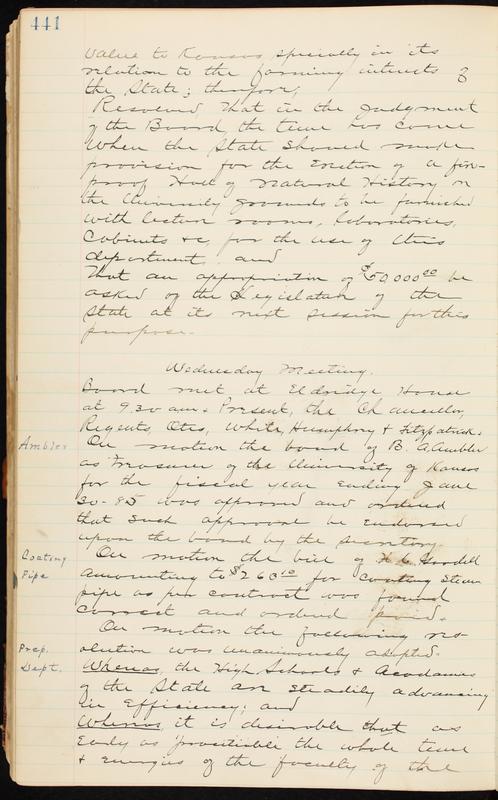 441
value to Kansas specially in its
relation to the farming interests of
the State; therefore,
Resolved, That in the judgment
of the Board, the time has come
when the State should make
provision for the Erection of a fire-
proof Hall of Natural History on
the University grounds to be furnished
with lecture rooms, laboratories,
Cabinets &c, for the use of this
department, and
That an appropriation of $50,000.00 be
asked of the Legislature of the
State at its next session for this
purpose.
Wednesday Meeting.
Board met at Eldridge House
at 9.30 a.m. Present, the Chancellor,
Regents, Otis, White, Humphrey & Fitzpatrick.
Ambler
On motion the bond of B. A. Ambler
as Treasurer of the University of Kansas
for the fiscal year Ending June
30-85 was approved and ordered
that such approval be Endorsed
upon the bond by the secretary.
Coating
Pipe
On motion the bill of Goodell
amounting to $263 for Coating Steam
pipe as per contract was found
correct and ordered paid.
On motion the following res-
Prep.
Dept.
olution was unanimously adopted.
Whereas, the High Schools & Academies
of the State are steadily advancing
in Efficiency; and
Whereas it is desirable that as
Early as practicable the whole time
& energies of the faculty of the